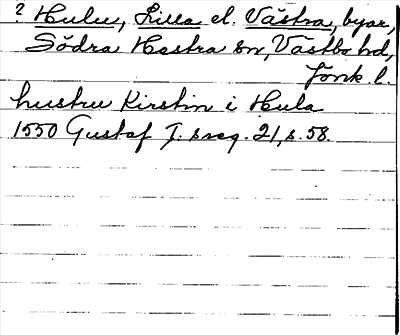 ? Hulu, Lilla el. Västra, byar,
Södra Hestra sn, Västbo hd,
Jönk l.
hustru Kirstin i Hula
1550 Gustaf I. reg. 21, s. 58.